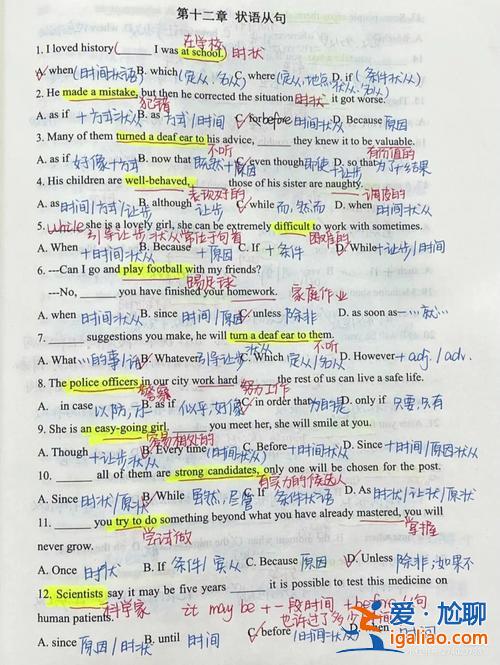 第十二章 状语从句
在学校
1. I loved history (______ I was at school. 时状
A. when (时间状语) B. which (定从.名从) C. where (定从,地点状从.名从) D. if (条件状从)
2. He made a mistake, but then he corrected the situation 时状 it got worse.
犯错
A. as if +方式状从 B. as 方式/时间 C. before 时间状从 D. Because 原因
3. Many of them turned a deaf ear to his advice, ______ they knew it to be valuable.
不听 有价值的
A. as if 好像+方式 B. now that 既然+原因 C. even though 即使+让步 D. so that 为了+结果
4. His children are well-behaved, ______ those of his sister are naughty.
表现好的 调皮的
A. as 时间/方式/让步 B. although 让步 C. while 而,然而 D. when 时状
5. while she is a lovely girl, she can be extremely difficult to work with sometimes.
引导让步状从常位于句首 困难的
A. When +时间状从 B. Because +原因 C. If +条件 D. While +让步/时间
6. ---Can I go and play football with my friends?
踢足球
---No, ______ you have finished your homework. 家庭作业
A. when 时间状从 B. since 时间/原因 C. unless 除非 D. as soon as 一…就…
7. ______ suggestions you make, he will turn a deaf ear to them.
不听
A. What …的事/话 B. Whatever 引导让步状从 C. Which 定从/名从 D. However + adj. / adv.
8. The police officers in our city work hard ______ the rest of us can live a safe life.
警察 努力工作
A. in case 以防,万一 B. as if 似乎,好像 C. in order that 为目地 D. only if 只要,只有
9. She is an easy-going girl. ______ you meet her, she will smile at you.
容易相处的
A. Though +让步状从 B. Every time (时间状从) C. Before +时间状从 D. Since +时间/原因状从
10. ______ all of them are strong candidates, only one will be chosen for the post.
有实力的候选人
A. Since 时状/原状 B. While 虽然,尽管 C. If 条件状语 D. As 时状/让状/原状
11. ______ you try to do something beyond what you have already mastered, you will
尝试做 掌握
never grow.
A. Once 时状 B. If 条件/宾从 C. Because 原因 D. Unless 除非;如果不
12. Scientists say it may be five years ______ it is possible to test this medicine on
科学家 it may be +一段时间 + before 从句
human patients.
A. since 原因/时间 B. until 时间 C. before
爱·尬聊
igaliao.com